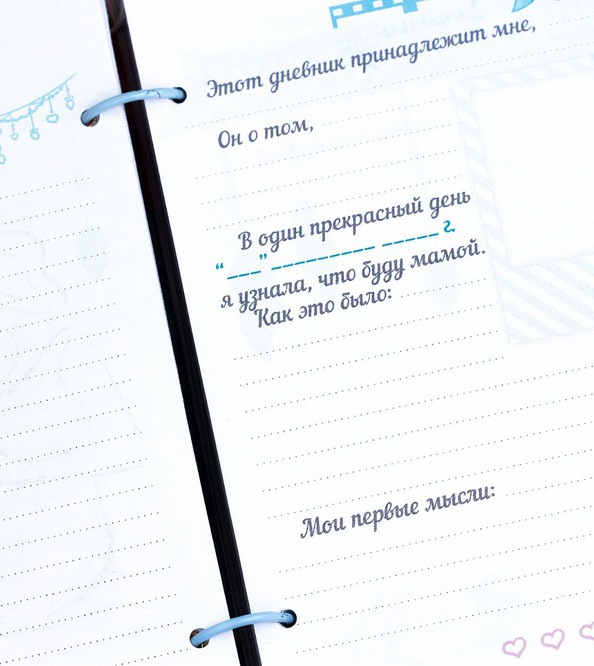 Этот дневник принадлежит мне,
Он о том,
В один прекрасный день
“___” _________ _____ г.
я узнала, что буду мамой.
Как это было:
Мои первые мысли: